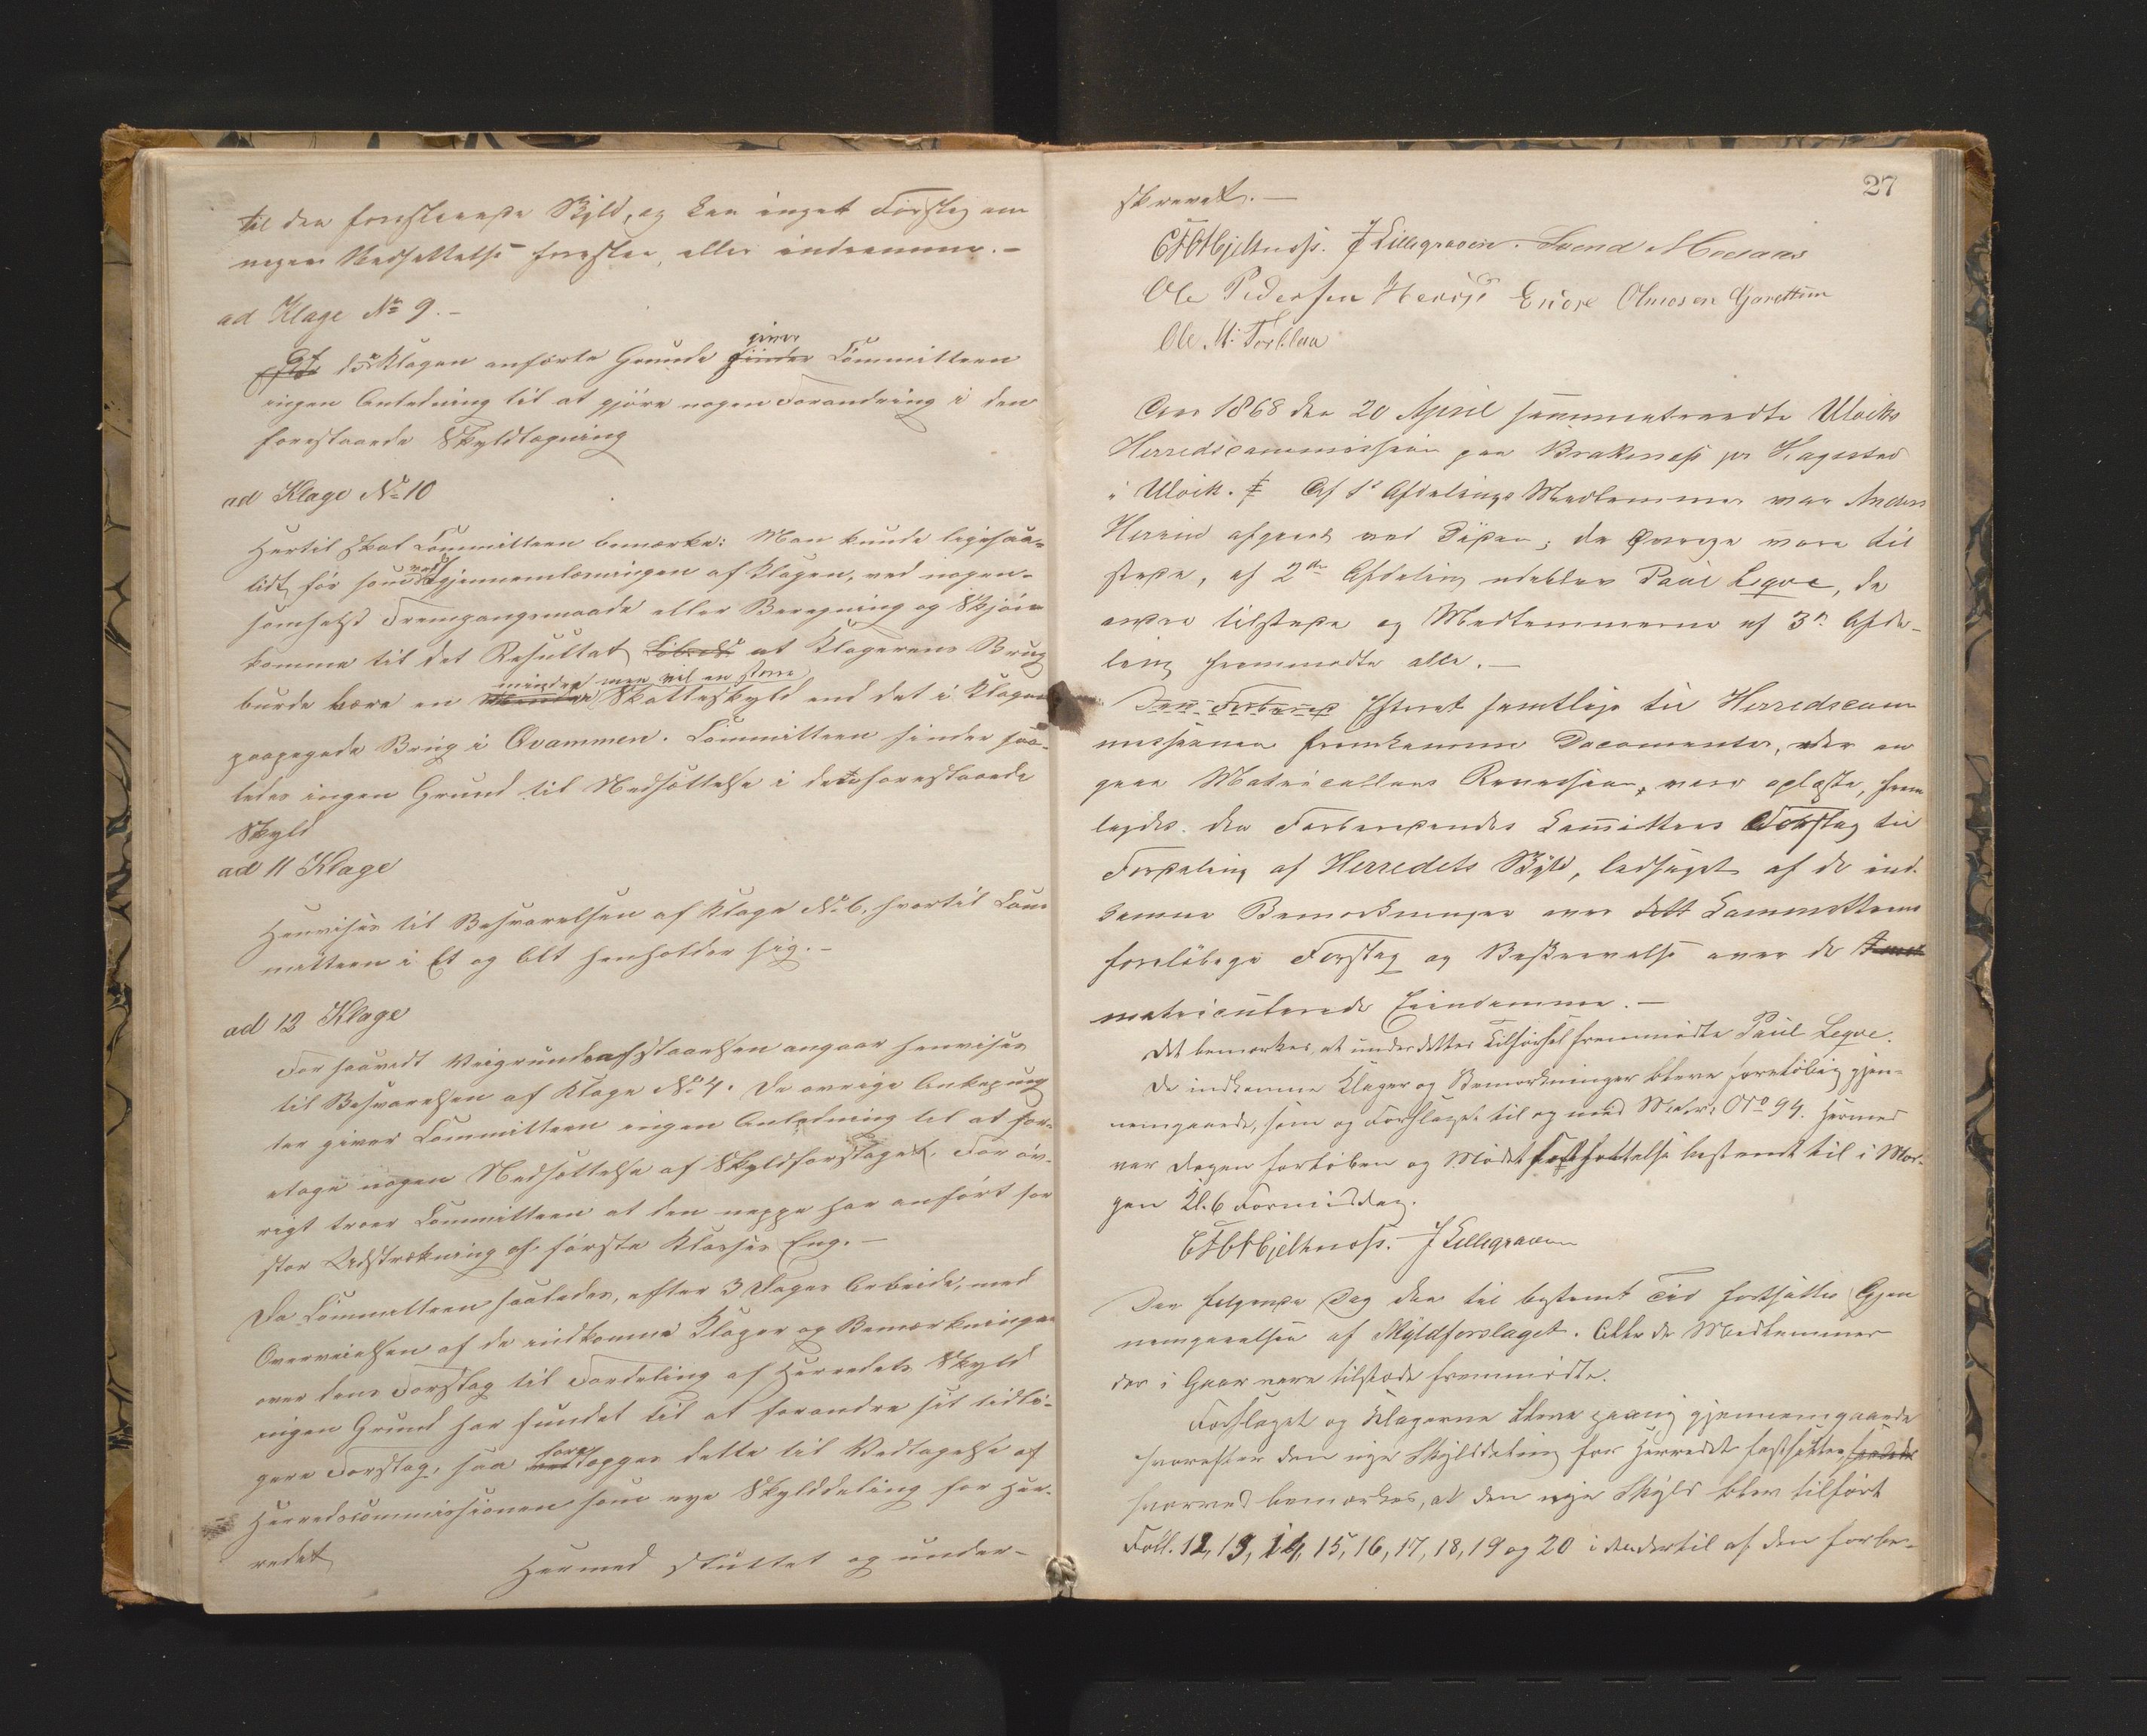 til den foreslaaede Skyld, og kan inget Forslag om
nogen Nedsættelse foreslaa, eller indrømme.-
ad Klage No 9.-
giver
Af de i Klagen anførte Grunde finder Committeen
ingen Anledning til at gjøre nogen Forandring i den
foreslaaede Skyldlægning
ad Klage No 10
Hertil skal Committeen bemærke: Man kunde ligesaa-
lidt før som ved gjennemlæsningen af Klagen, ved nogen-
somhelst Fremgangsmaade eller Beregning og Skjøn
komme til det Resultat at Klagerens Brug
mindre men vel en større
burde bære en mindre Skatteskyld end det i Klagen
paapegede Brug i Qvammen. Committeen finder saa-
ledes ingen Grund til Nedsættelse i den foreslaaede
Skyld
ad 11 Klage
Henvises til Besvarelsen af Klage No 6, hvortil Com-
mitteen i Et og Alt henholder sig.-
ad 12 Klage
Forsaavidt Veigrundsafstaaelsen angaar henvises
til Besvarelsen af Klage No 4. De øvrige Ankepunk-
ter giver Committeen ingen Anledning til at for-
etage nogen Nedsættelse af Skyldforslaget. For øv-
rigt troer Committeen at den neppe har anført for
stor Udstrækning af første Klasses Eng.-
Da Committeen saaledes, efter 3 Dages Arbeide, med
Overveielsen af de indkomne Klager og Bemærkninger
over dens Forslag til Fordeling af Herredets Skyld
ingen Grund har fundet til at forandre sit tidli-
fore
gere Forslag, saa lægges dette til Vedtagelse af
Herredscommissionen som nye Skylddeling for Her-
redet
Hermed sluttet og under-
27
skrevet.-
Hjeltnæss. J Lillegraven. Svend
Ole Pedersen
Ole M: Torblaa
Aar 1868 den 20 April sammentraadte Ulviks
Herredscommission paa Brakenæs pr Hagestad
i Ulvik. Af 1ste Afdelings Medlemmer var Anders
Hereim afgaaet ved Døden; de Øvrige vare til
stede, af 2den Afdeling udeblev Paul Leqve, de
andre tilstede og Medlemmerne af 3die Afde-
ling fremmødte alle.-
Efterat samtlige til Herredscom
missionen fremkomne Documenter, der an
gaar Matricullens Revision, vare oplæste, frem
lagdes den Forberedendes Comittees Forslag til
Fordeling af Herredets Skyld, ledsaget af de ind-
komne Bemærkninger over dett Committeens
foreløbige Forslag og Beskrivelse over de
matriculerede Eiendomme.-
Det bemærkes, at under dettes Tilførsel fremmødte Paul Leqve.
De indkomne Klager og Bemærkninger bleve foreløbig gjen-
nemgaaede, som og Forslaget til og med Matr: No 94. Hermed
var Dagen forløben og Mødets Fortsættelse bestemt til i Mor-
gen Kl. 6 Formiddag.
Hjeltnæss. J Lillegraven
Den følgende Dag den til bestemt Tid fortsattes Gjen
nemgaaelsen af Skyldforslaget. Alle de Medlemmer
der i Gaar vare tilstede fremmødte.
Forslaget og Klagerne bleve paany gjennemgaaede
hvorefter den nye Skylddeling for Herredet fastsattes,
hvorved bemærkes, at den nye Skyld blev tilført
Foll. 12, 13, 14, 15, 16, 17, 18, 19 og 20 i den dertil af den forbe-